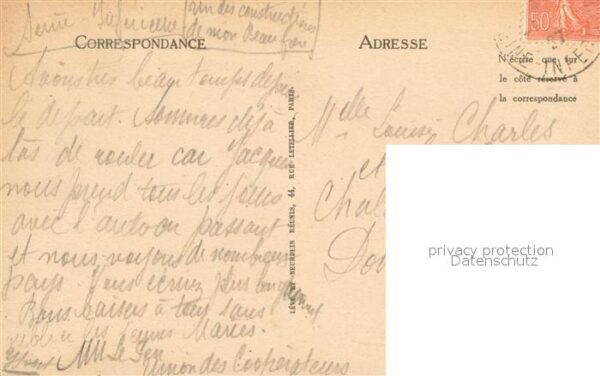 un des constructions
de mon beau frère
CORRESPONDANCE
ADRESSE
50c
N'écrire que sur
le côté réservé à
la correspondance
beau temps depuis
le départ. Sommes déjà
las de rouler car Jacques
nous prend tous les jours
avec l'auto en passant
et nous voyons de nombreux
pays. Vous écrirez plus longuement
Bons baisers à tous sans
oublier les jeunes Mariés.
Union des Coopérateurs
LÉVY ET NEURDEIN RÉUNIS, 44, RUE LETELLIER, PARIS
Melle Louise Charles
et
privacy protection
Datenschutz